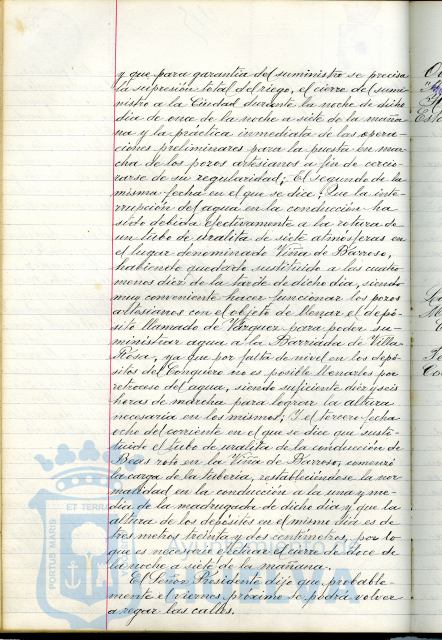 y que para garantia del suministro se precisa
la supresión total del riego, el cierre del sumi-
nistro a la Ciudad durante la noche de dicho
dia de once de la noche a siete de la maña-
na y la práctica inmediata de las opera-
ciones preliminares para la puesta en mar-
cha de los pozos artesianos a fin de cercio-
rarse de su regularidad; El segundo de la
misma fecha en el que se dice: Que la inte-
rrupción del agua en la conducción ha
sido debida efectivamente a la rotura de
un tubo de uralita de siete atmósferas en
el lugar denominado Viña de Barroso,
habiendo quedado sustituido a las cuatro
menos diez de la tarde de dicho dia, siendo
muy conveniente hacer funcionar los pozos
artesianos con el objeto de llenar el depó-
sito llamado de Vázquez para poder su-
ministrar agua a la Barriada de Villa
Rosa, ya que por falta de nivel en los depó-
sitos del Conquero no es posible llenarlos por
retroceso del agua, siendo suficiente diez y seis
horas de marcha para lograr la altura
necesaria en los mismos; Y el tercero fecha
ocho del corriente en el que se dice que susti-
tuido el tubo de uralita de la conducción de
Beas roto en la Viña de Barroso, comenzó
la carga de la tuberia, restableciéndose la nor-
malidad en la conducción a la una y me-
dia de la madrugada de dicho dia y que la
altura de los depósitos en el mismo dia es de
tres metros treinta y dos centimetros, por lo
que es necesario efectuar el cierre de doce de
la noche a siete de la mañana.
El Señor Presidente dijo que probable-
mente el viernes próximo se podrá volver
a regar las calles.
PORTUS MARIS ET TERRAE